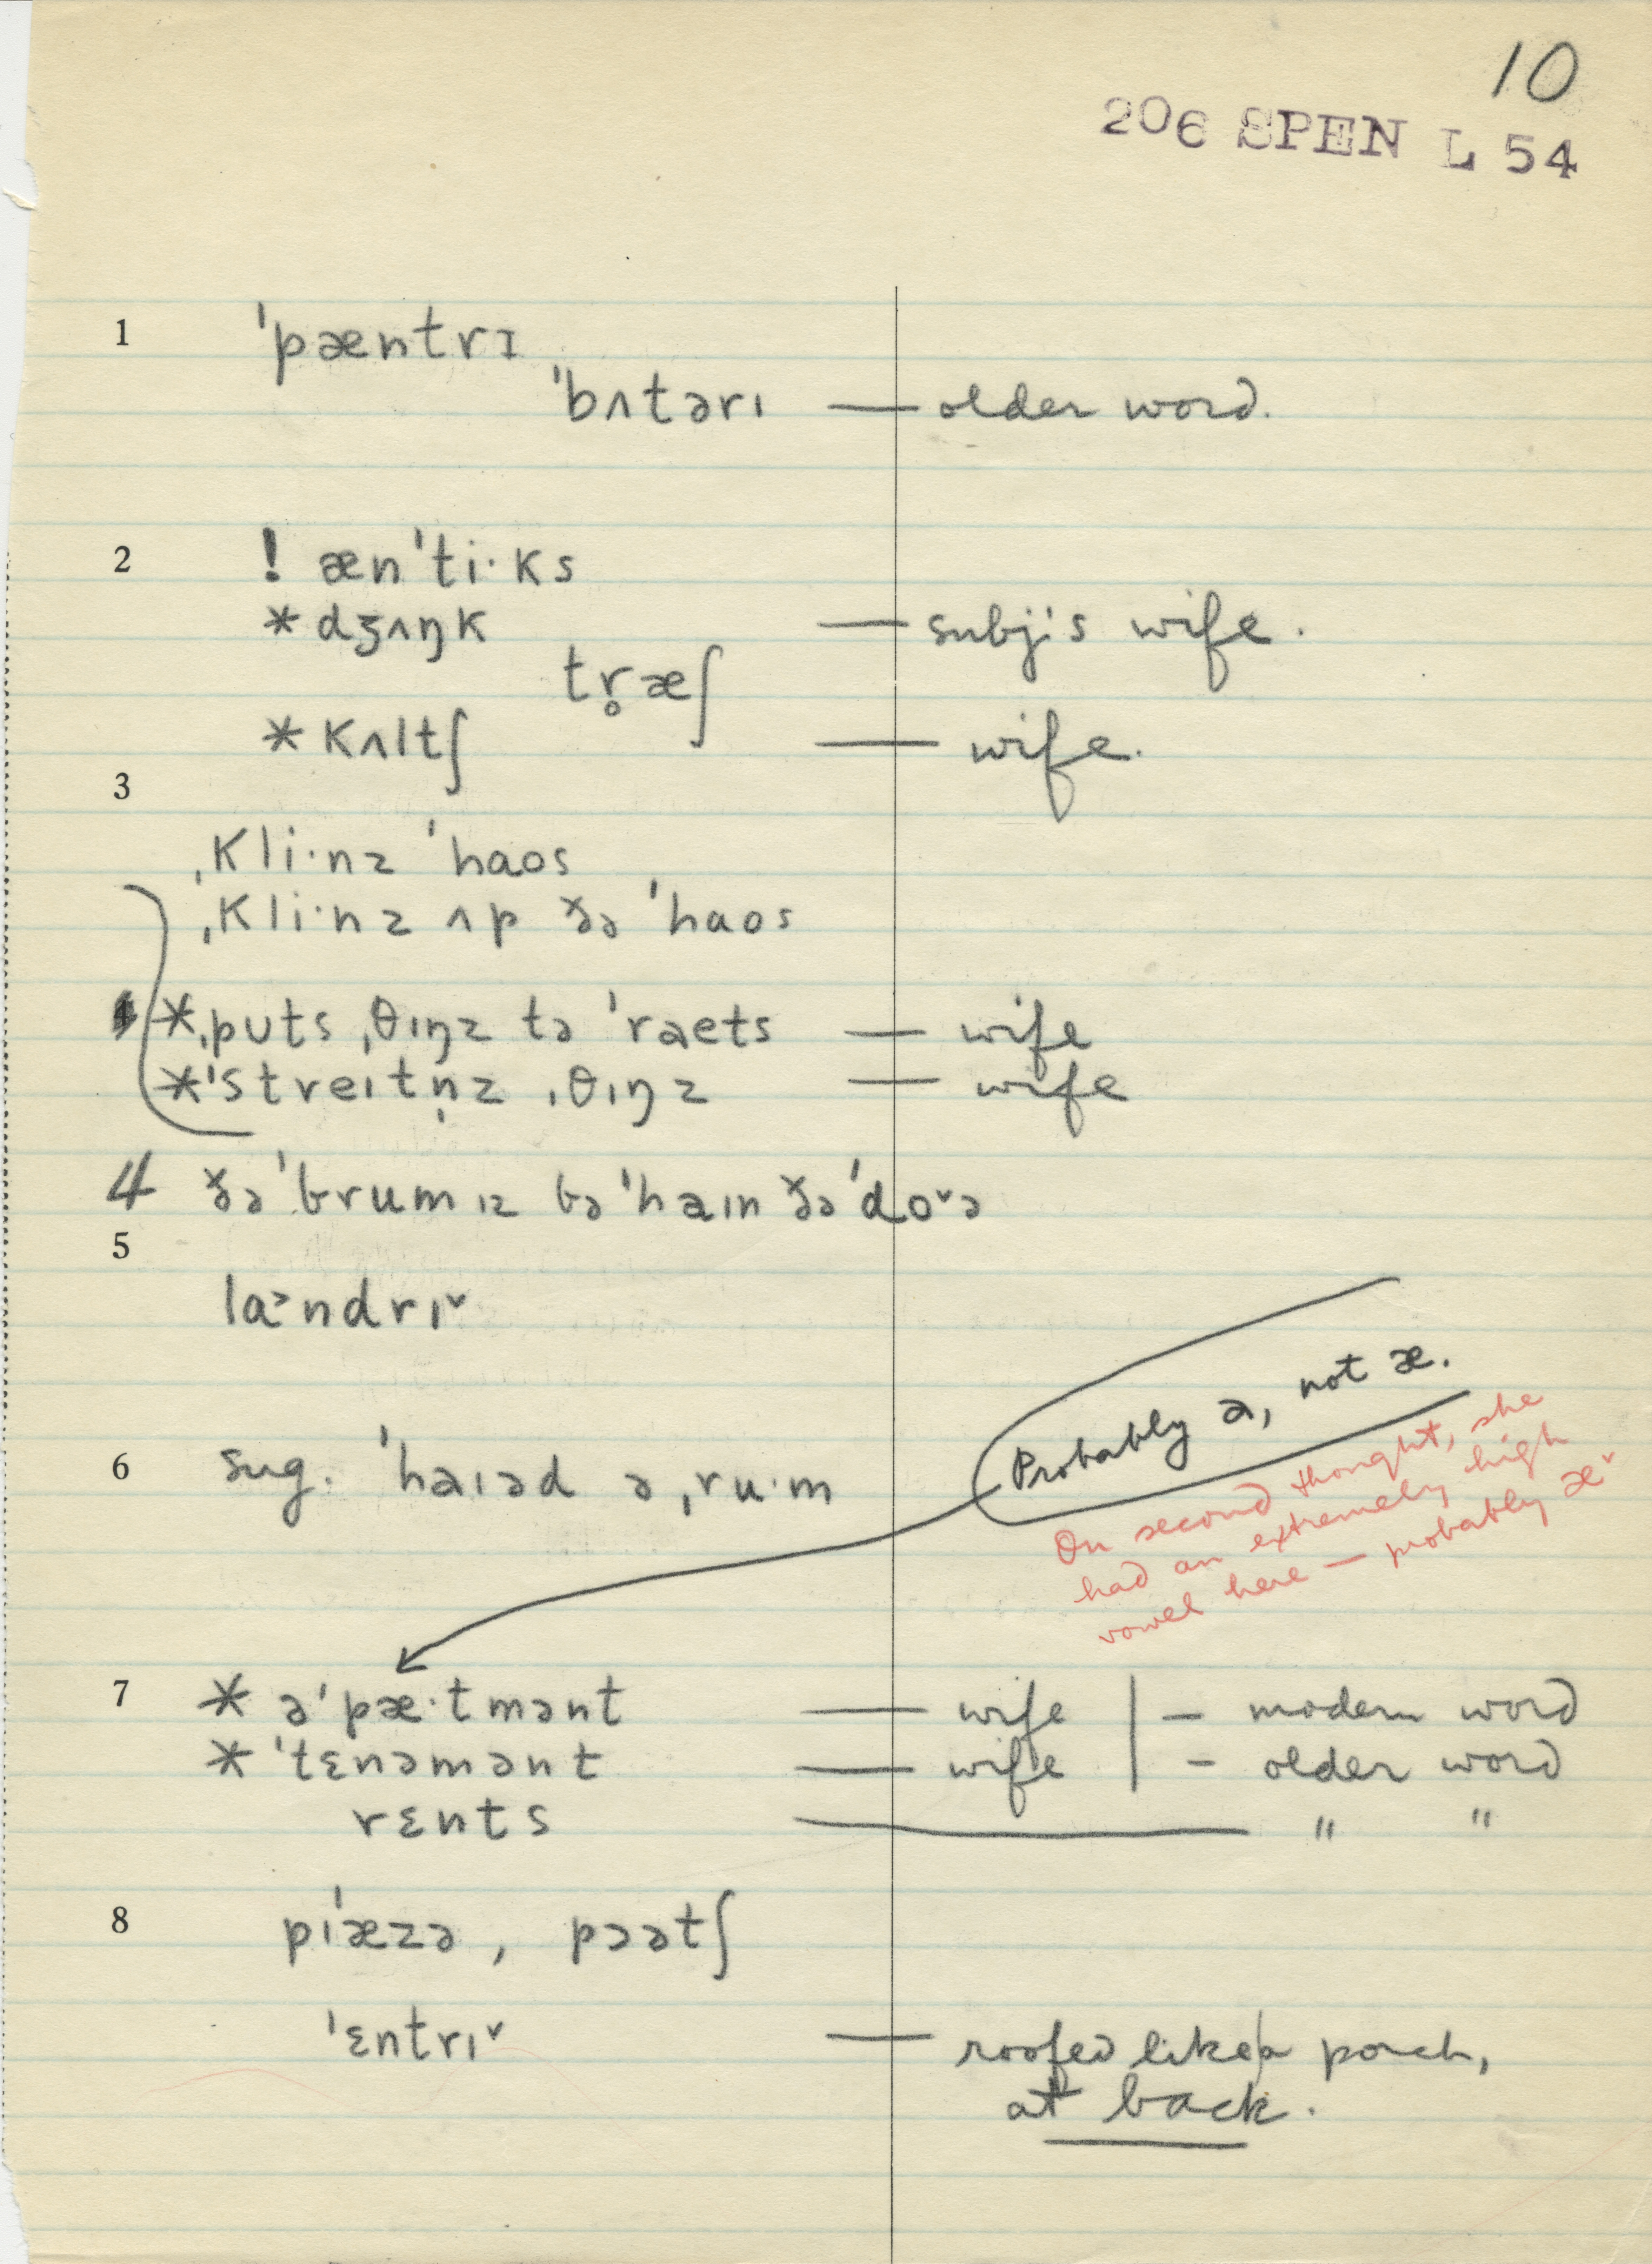 10
206 SPEN L 54
1 ˈpæntrɪ
ˈbʌtərɪ — older word.
2 ! ænˈti·ks
* dʒʌŋk — subj's wife.
tr̥æʃ
* kʌltʃ — wife.
3
ˌkli·nz ˈhaos
ˌkli·nz ʌp ðə ˈhaos
* ˌpʊts ˌθɪŋz tə ˈraets — wife
* ˈstreɪtn̩z ˌθɪŋz — wife
4 ðə ˈbrum ɪz bəˈhaɪn ðə ˈdo˅ə
5
la˃ndrɪ˅
Probably a, not æ.
On second thought, she
had an extremely high
vowel here — probably æ˅
6 sug. ˈhaɪəd ə ˌru·m
7 * əˈpæ·tmənt — wife | — modern word
* ˈtɛnəmənt — wife | — older word
rɛnts — " "
8 pɪˈæzə, pɔətʃ
ˈɛntrɪ˅ — roofed like a porch,
at back.